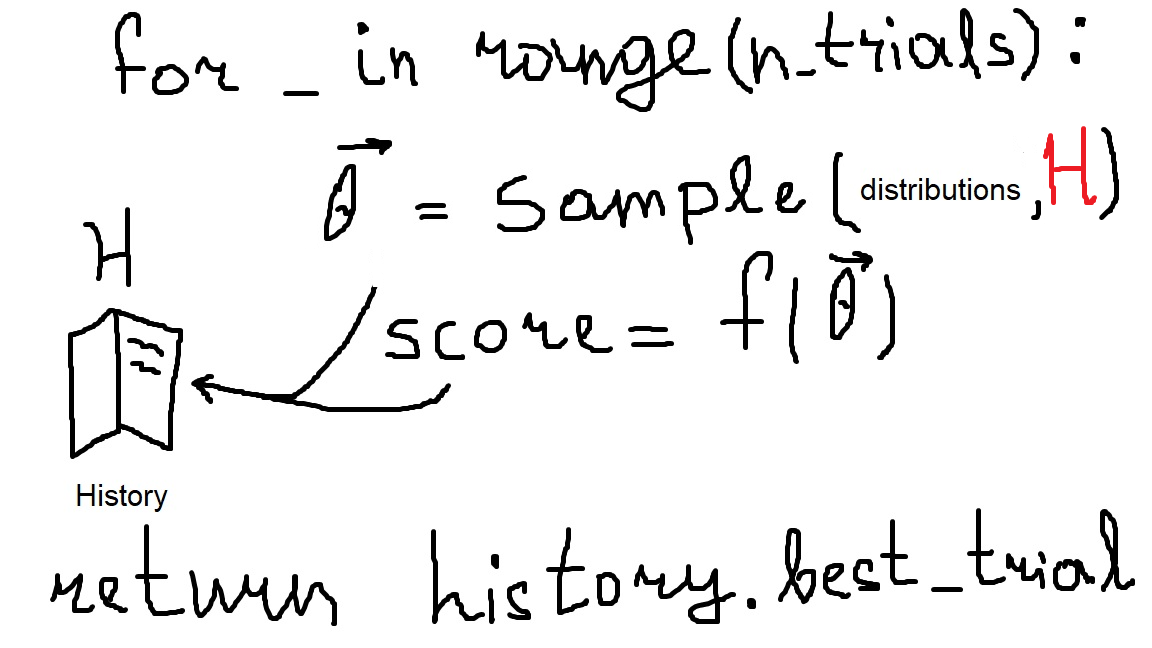 for _ in range(n_trials):
θ⃗ = sample(distributions, H)
H
score = f(θ⃗)
History
return history.best_trial